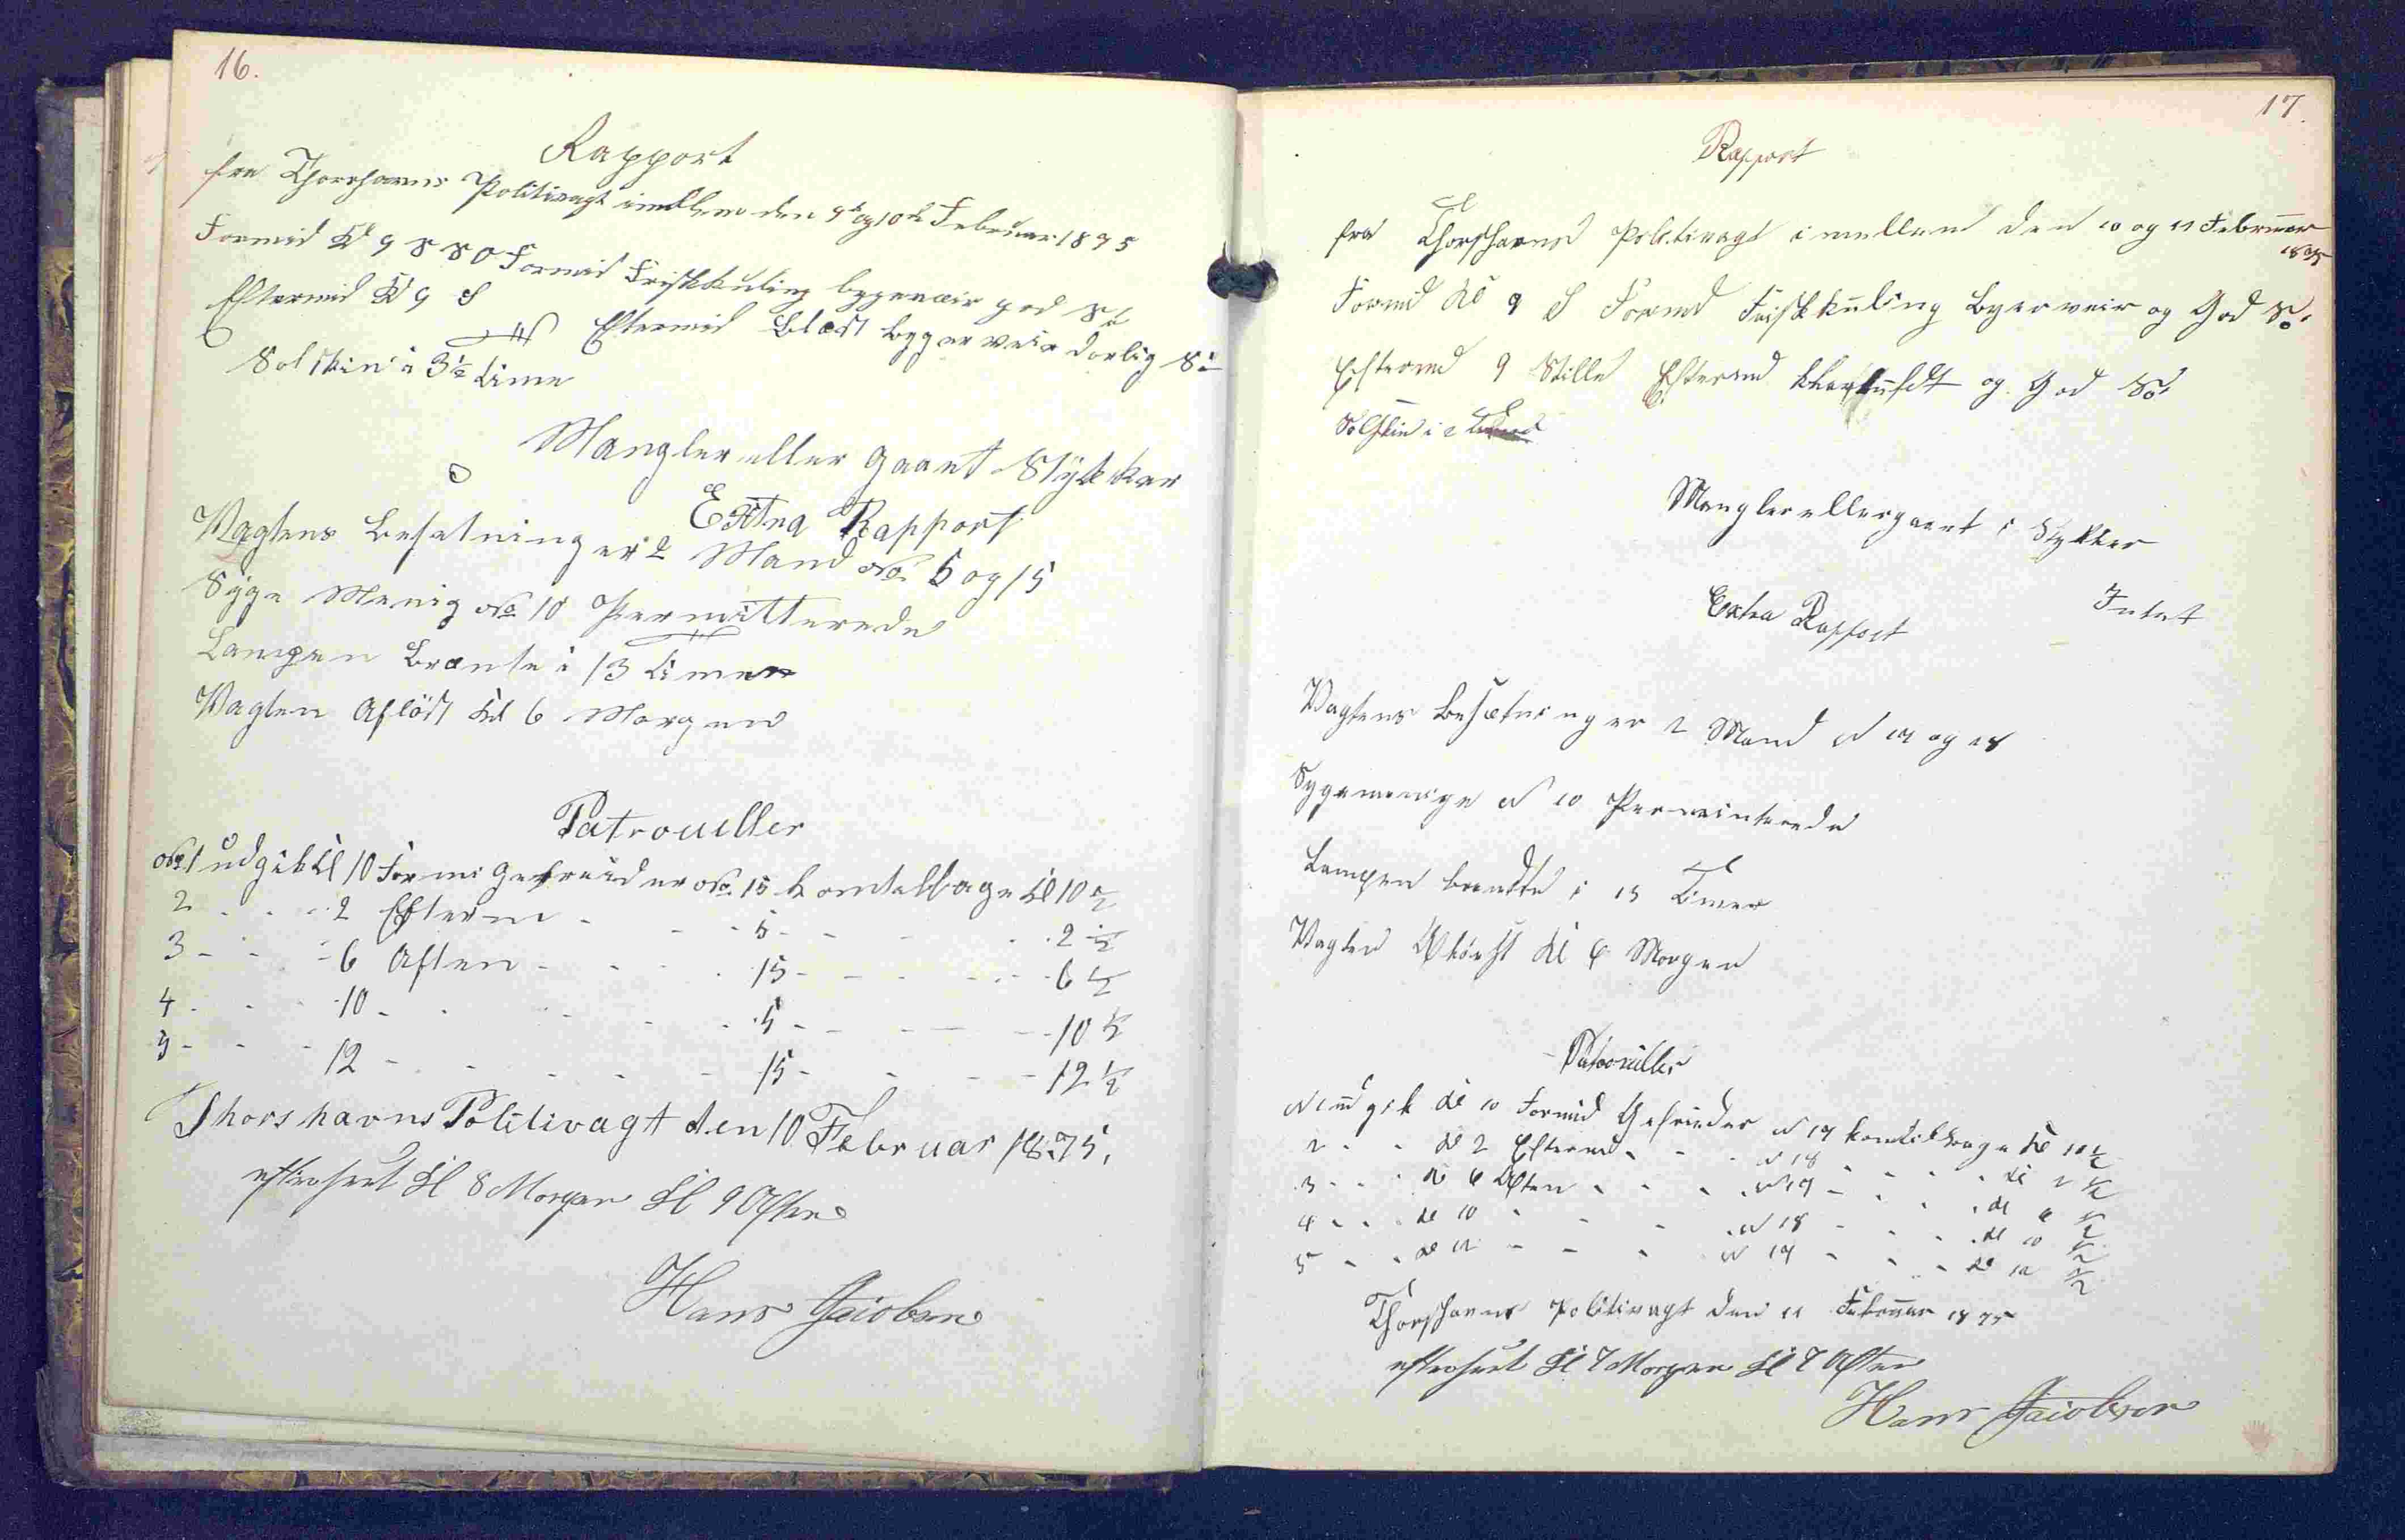 16.
Rapport
fra Thorshavns Politivagt imellem den 9de og 10de Februar 1875
Formid Kl 9 S S O Formid Friskkuling bygeveir god Sö
Eftermid Kl 9 S Eftermid Blæst bygerveir dorlig Sö
Solskin i 3½ time
Mangler eller gaaet Stÿkker
Extra Rapport
Vagtens Besetning er 2 Mand No 5 og 15
Syge Menig No 10 Permitterede
Lampen Brænte i 13 timer
Vagten Aflöst Kl 6 Morgen
Patrouiller
No 1 udgik Kl 10 Formi Gefreider No 15 komtelbage Kl 10½
2 - - - 2 Efterm - - - 5 - - - 2½
3 - - - 6 Aften - - - 15 - - - 6½
4 - - - 10 - - - 5 - - - 10½
5 - - - 12 - - - 15 - - - 12½
Thorshavns Politivagt den 10 Februar 1875.
efterseet Kl 8 Morgen Kl 9 Aften
Hans Jacobsen
17.
Rapport
fra Thorshavns Politivagt imellem den 10 og 11 Februar
1875
Formid Kl 9 S Formid Friskkuling Bygerveir og God Sö
Efterm 9 Stille Efterm og God Sö
Solskin i 2
Mangler eller gaaet i Stykker
Intet
Extra Rapport
Vagtens Besætning er 2 Mand N 19 og 18
Sygemenige N 10 Permitterede
Lampen brendte i 13 Timer
Vagten Afløest Kl 6 Morgen
Patrouiller
N 1 udgik Kl 10 Formid Gefreider N 19 komtilbage Kl 10½
2 - - Kl 2 Efterm - - - N 18 - - - Kl 2½
3 - - Kl 6 Aften - - - N 19 - - - Kl 6½
4 - - Kl 10 - - - N 18 - - - Kl 10½
5 - - Kl 12 - - - N 19 - - - Kl 12½
Thorshavns Politivagt den 11 Februar 1875
efterseet Kl 7 Morgen Kl 7 Aften
Hans Jacobsen